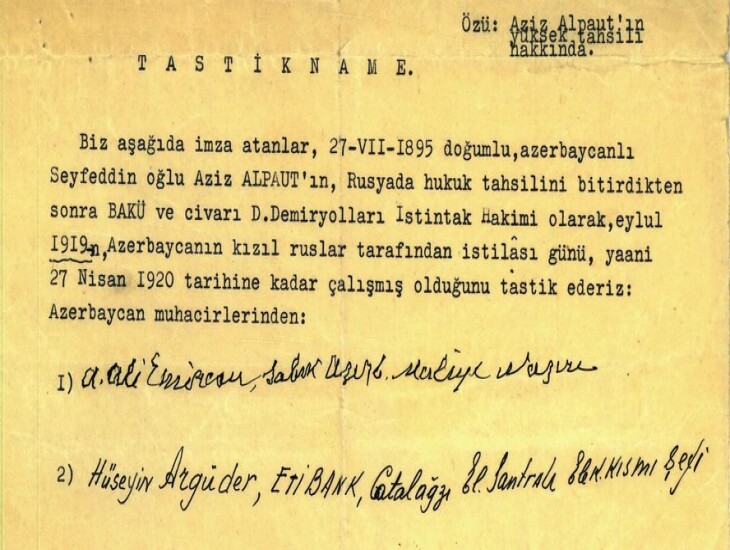 Özü: Aziz Alpaut'ın
yüksek tahsili
hakkında.
T A S T İ K N A M E.
Biz aşağıda imza atanlar, 27-VII-I895 doğumlu,azerbaycanlı
Seyfeddin oğlu Aziz ALPAUT'ın, Rusyada hukuk tahsilini bitirdikten
sonra BAKÜ ve civarı D.Demiryolları İstintak Hakimi olarak,eylul
I9I9-n,Azerbaycanın kızıl ruslar tarafından istilâsı günü, yaani
27 Nisan I920 tarihine kadar çalışmış olduğunu tastik ederiz:
Azerbaycan muhacirlerinden:
I) A. Ali Emircan, sabık Azerb. Maliye Naziri
2) Hüseyin Argüder, ETİBANK, Çatalağzı El. Santralı Elek. kısmı Şefi